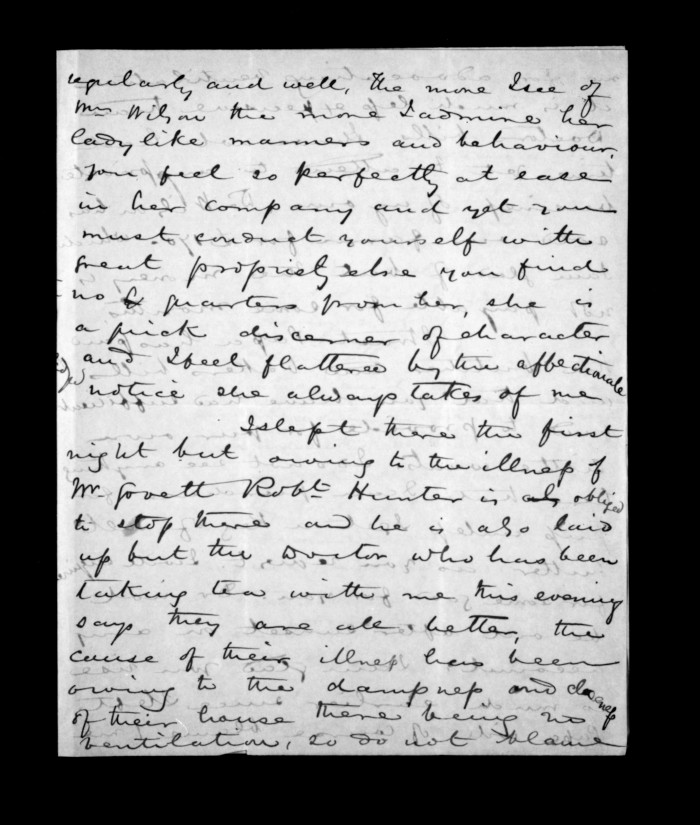 regularly and well, the more I see of
Mrs Wilson the more I admire her
ladylike manners and behaviour,
you feel so perfectly at ease
in her company and yet you
must conduct yourself with
great propriety else you find
no quarters from her, she is
a quick discerner of character
and I feel flattered by the affectionate
notice she always takes of me
I slept there the first
night but owing to the illness of
Mr Govett Robt Hunter is also obliged
to stop there and he is also laid
up but the Doctor who has been
taking tea with me this evening
says they are all better, the
cause of their illness has been
owing to the dampness and closeness
of their house there being no
ventilation, so do not blame